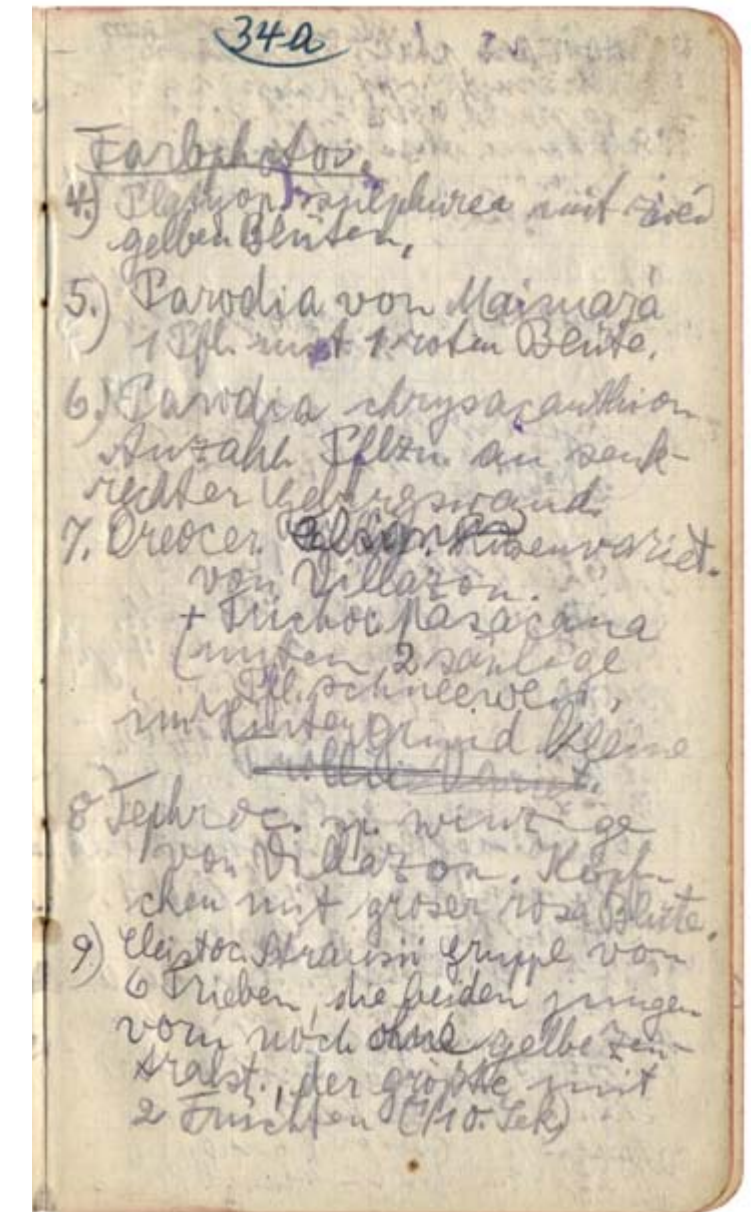 34a
Farbphotos.
4.) Platyop. sulphurea mit zwei
gelben Blüten,
5.) Parodia von Maimará
1 Pfl. mit 1 roten Blüte.
6.) Parodia chrysacanthion
Anzahl Pflzn. an senk-
rechter Gebirgswand.
7. Oreocer. Riesenvariet.
von Villazon.
+ Trichoc. pasacana
(mitten 2 säulige
Pfl. schneeweiss,
im Hintergrund kleine
8 Tephroc. sp. winzige
von Villazon. Köpf-
chen mit groser rosa Blüte.
9) Cleistoc. Strausii Gruppe von
6 Trieben, die beiden jungen
vorn noch ohne gelbe Zen-
tralst., der größte mit
2 Früchten (1/10. Sek)